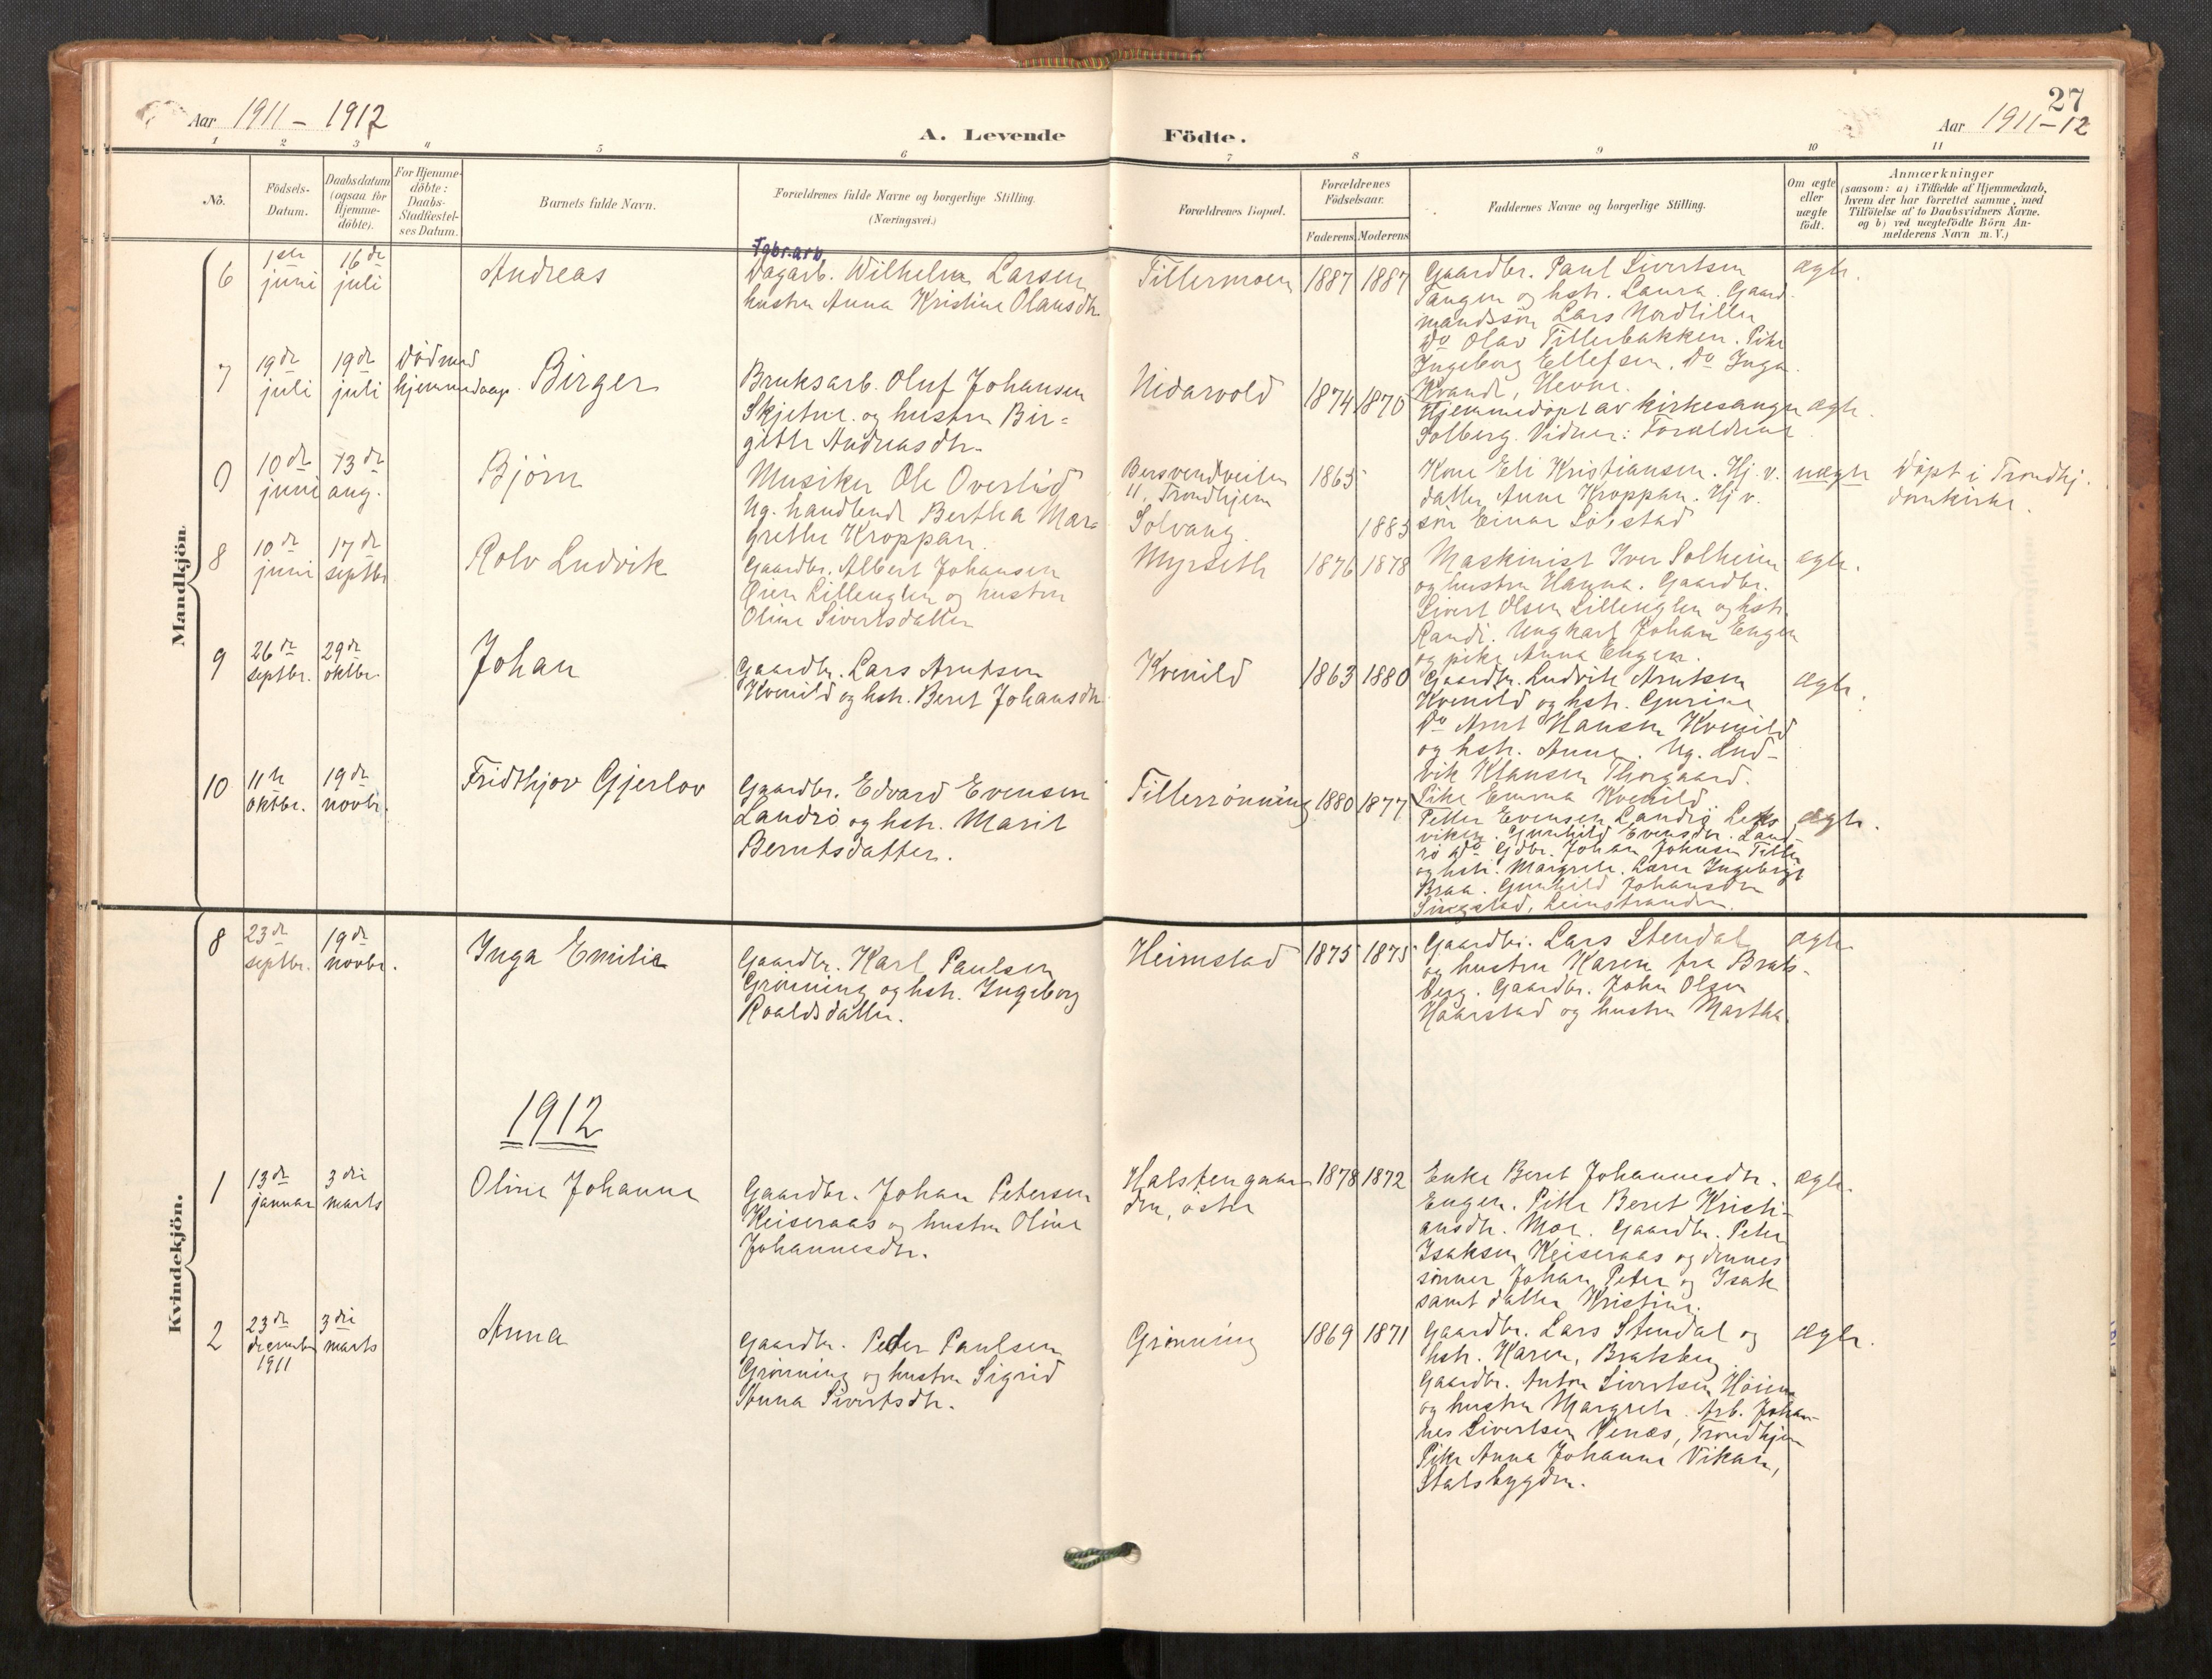 Aar 1911 – 1912
A. Levende Födte.
27
Aar 1911–12
1 2 3 4 5 6 7 8 9 10 11
No.
Födsels-
Datum.
Daabsdatum
(ogsaa for
Hjemme-
döbte).
For Hjemme-
döbte:
Daabs-
Stadfæstel-
ses Datum.
Barnets fulde Navn.
Forældrenes fulde Navne og borgerlige Stilling.
(Næringsvei.)
Forældrenes Bopæl.
Forældrenes
Födselsaar.
Faderens. Moderens.
Faddernes Navne og borgerlige Stilling.
Om ægte
eller
uægte
födt.
Anmærkninger
(saasom: a) i Tilfælde af Hjemmedaab,
hvem der har forrettet samme, med
Tilföielse af to Daabsvidners Navne,
og b) ved uægtefödte Börn An-
melderens Navn m. V.)
Mandkjön
6
1ste
juni
16de
juli
Andreas
Fabr.arb.
Dagarb. Wilhelm Larsen
hustru Anna Kristine Olausdtr.
Tillermoen
1887 1887
Gaardbr. Paul Sivertsen
Tangen og hstr. Laura. Gaard-
mandssön Lars Nordtiller
Do Olav Tillerbakken. Pike
Ingeborg Ellefsen. Do Inga
Kvande, Hevne.
ægte.
7
19de
juli
19de
juli
Död med
hjemmedaap.
Birger
Bruksarb. Oluf Johansen
Skjetne og hustru Bir-
gitte Andreasdtr.
Nidarvold
1874 1870
Hjemmedöpt av kirkesanger
Solberg. Vidner: Forældrene
ægte.
0
10de
juni
13de
aug.
Björn
Musiker Ole Overlid
Ug. handlende Bertha Mar-
grethe Kroppan.
Bersvendveiten
11, Trondhjem
Solvang.
1865
1883
Kone Eli Kristiansen. Hj.v.
datter Anne Kroppan. Hj.v.
sön Einar Solstad
uægte
Döpt i Trondhj.
domkirke.
8
10de
juni
17de
septbr
Rolv Ludvik
Gaardbr. Albert Johansen
Öien Lillenglen og hustru
Oline Sivertsdatter
Myrseth
1876 1878
Maskinist Iver Solheim
og hustru Hanna. Gaardbr.
Sivert Olsen Lillenglen og hstr.
Randi. Ungkarl Johan Engen
og pike Anna Engen.
ægte.
9
26de
septbr.
29de
oktbr.
Johan
Gaardbr. Lars Arntsen
Kvenild og hstr. Beret Johansdtr
Kvenild
1863 1880
Gaardbr. Ludvik Arntsen
Kvenild og hstr. Gurine
Do Arnt Hansen Kvenild
og hstr. Anne. Ug. Lud-
vik Klausen Thorgaard.
Pike Emma Kvenild.
ægte.
10
11te
oktbr.
19de
novbr.
Fridthjov Gjerlov
Gaardbr. Edvard Evensen
Landrö og hstr. Marit
Berntsdatter.
Tillerrönning
1880 1877
Petter Evensen Landrö Leks
viken. Gunhild Evensdtr. Land-
rö do. Gdbr. Johan Johnsen Tiller
og hstr. Margrete. Lærer Ingebrigt
Braa. Gunhild Johansdtr
Singstad, Leinstranden.
ægte.
Kvindekjön.
8
23de
septbr.
19de
novbr.
Inga Emilie
Gaardbr. Karl Paulsen
Grönning og hstr. Ingeborg
Roaldsdatter.
Heimstad
1875 1875
Gaardbr. Lars Stendal
og hustru Karen fra Brats-
berg. Gaardbr. John Olsen
Haarstad og hustru Martha.
ægte
1912
1
13de
januar
3die
marts
Oline Johanne
Gaardbr. Johan Petersen
Keiseraas og hustru Oline
Johannesdtr.
Halstengaar-
den, östre
1878 1872
Enke Beret Johannesdtr.
Engen. Pike Beret Kristi-
ansdtr. Moe. Gaardbr. Peter
Isaksen Keiseraas og dennes
sönner Johan Peter og Isak
samt datter Kristine.
ægte
2
23de
december
1911
3die
marts
Anna
Gaardbr. Peder Paulsen
Grönning og hustru Sigrid
Anna Sivertsdtr.
Grönning
1869 1871
Gaardbr. Lars Stendal og
hstr. Karen, Bratsberg
Gaardbr. Anton Sivertsen Höiem
og hustru Margrete. Arb. Johan-
nes Sivertsen Venæs, Trondhjem
Pike Anna Johanne Vikan,
Statsbygden.
ægte.